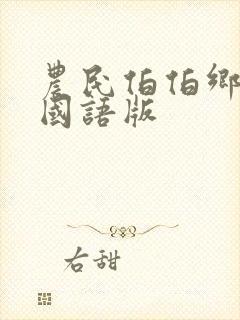 農民伯伯鄉
國語版
右甜